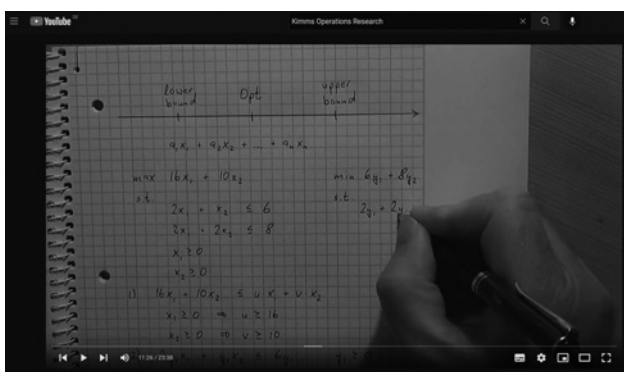 YouTube DE
Kimms Operations Research
lower bound
Opt.
upper bound
a₁x₁ + a₂x₂ + ... + aₙxₙ
max 16x₁ + 10x₂
s.t.
2x₁ + x₂ ≤ 6
2x₁ + 2x₂ ≤ 8
x₁ ≥ 0
x₂ ≥ 0
min 6y₁ + 8y₂
s.t.
2y₁ + 2y
1) 16x₁ + 10x₂ ≤ u x₁ + v x₂
x₁ ≥ 0 ⇒ u ≥ 16
x₂ ≥ 0 ⇒ v ≥ 10
11:26 / 23:38